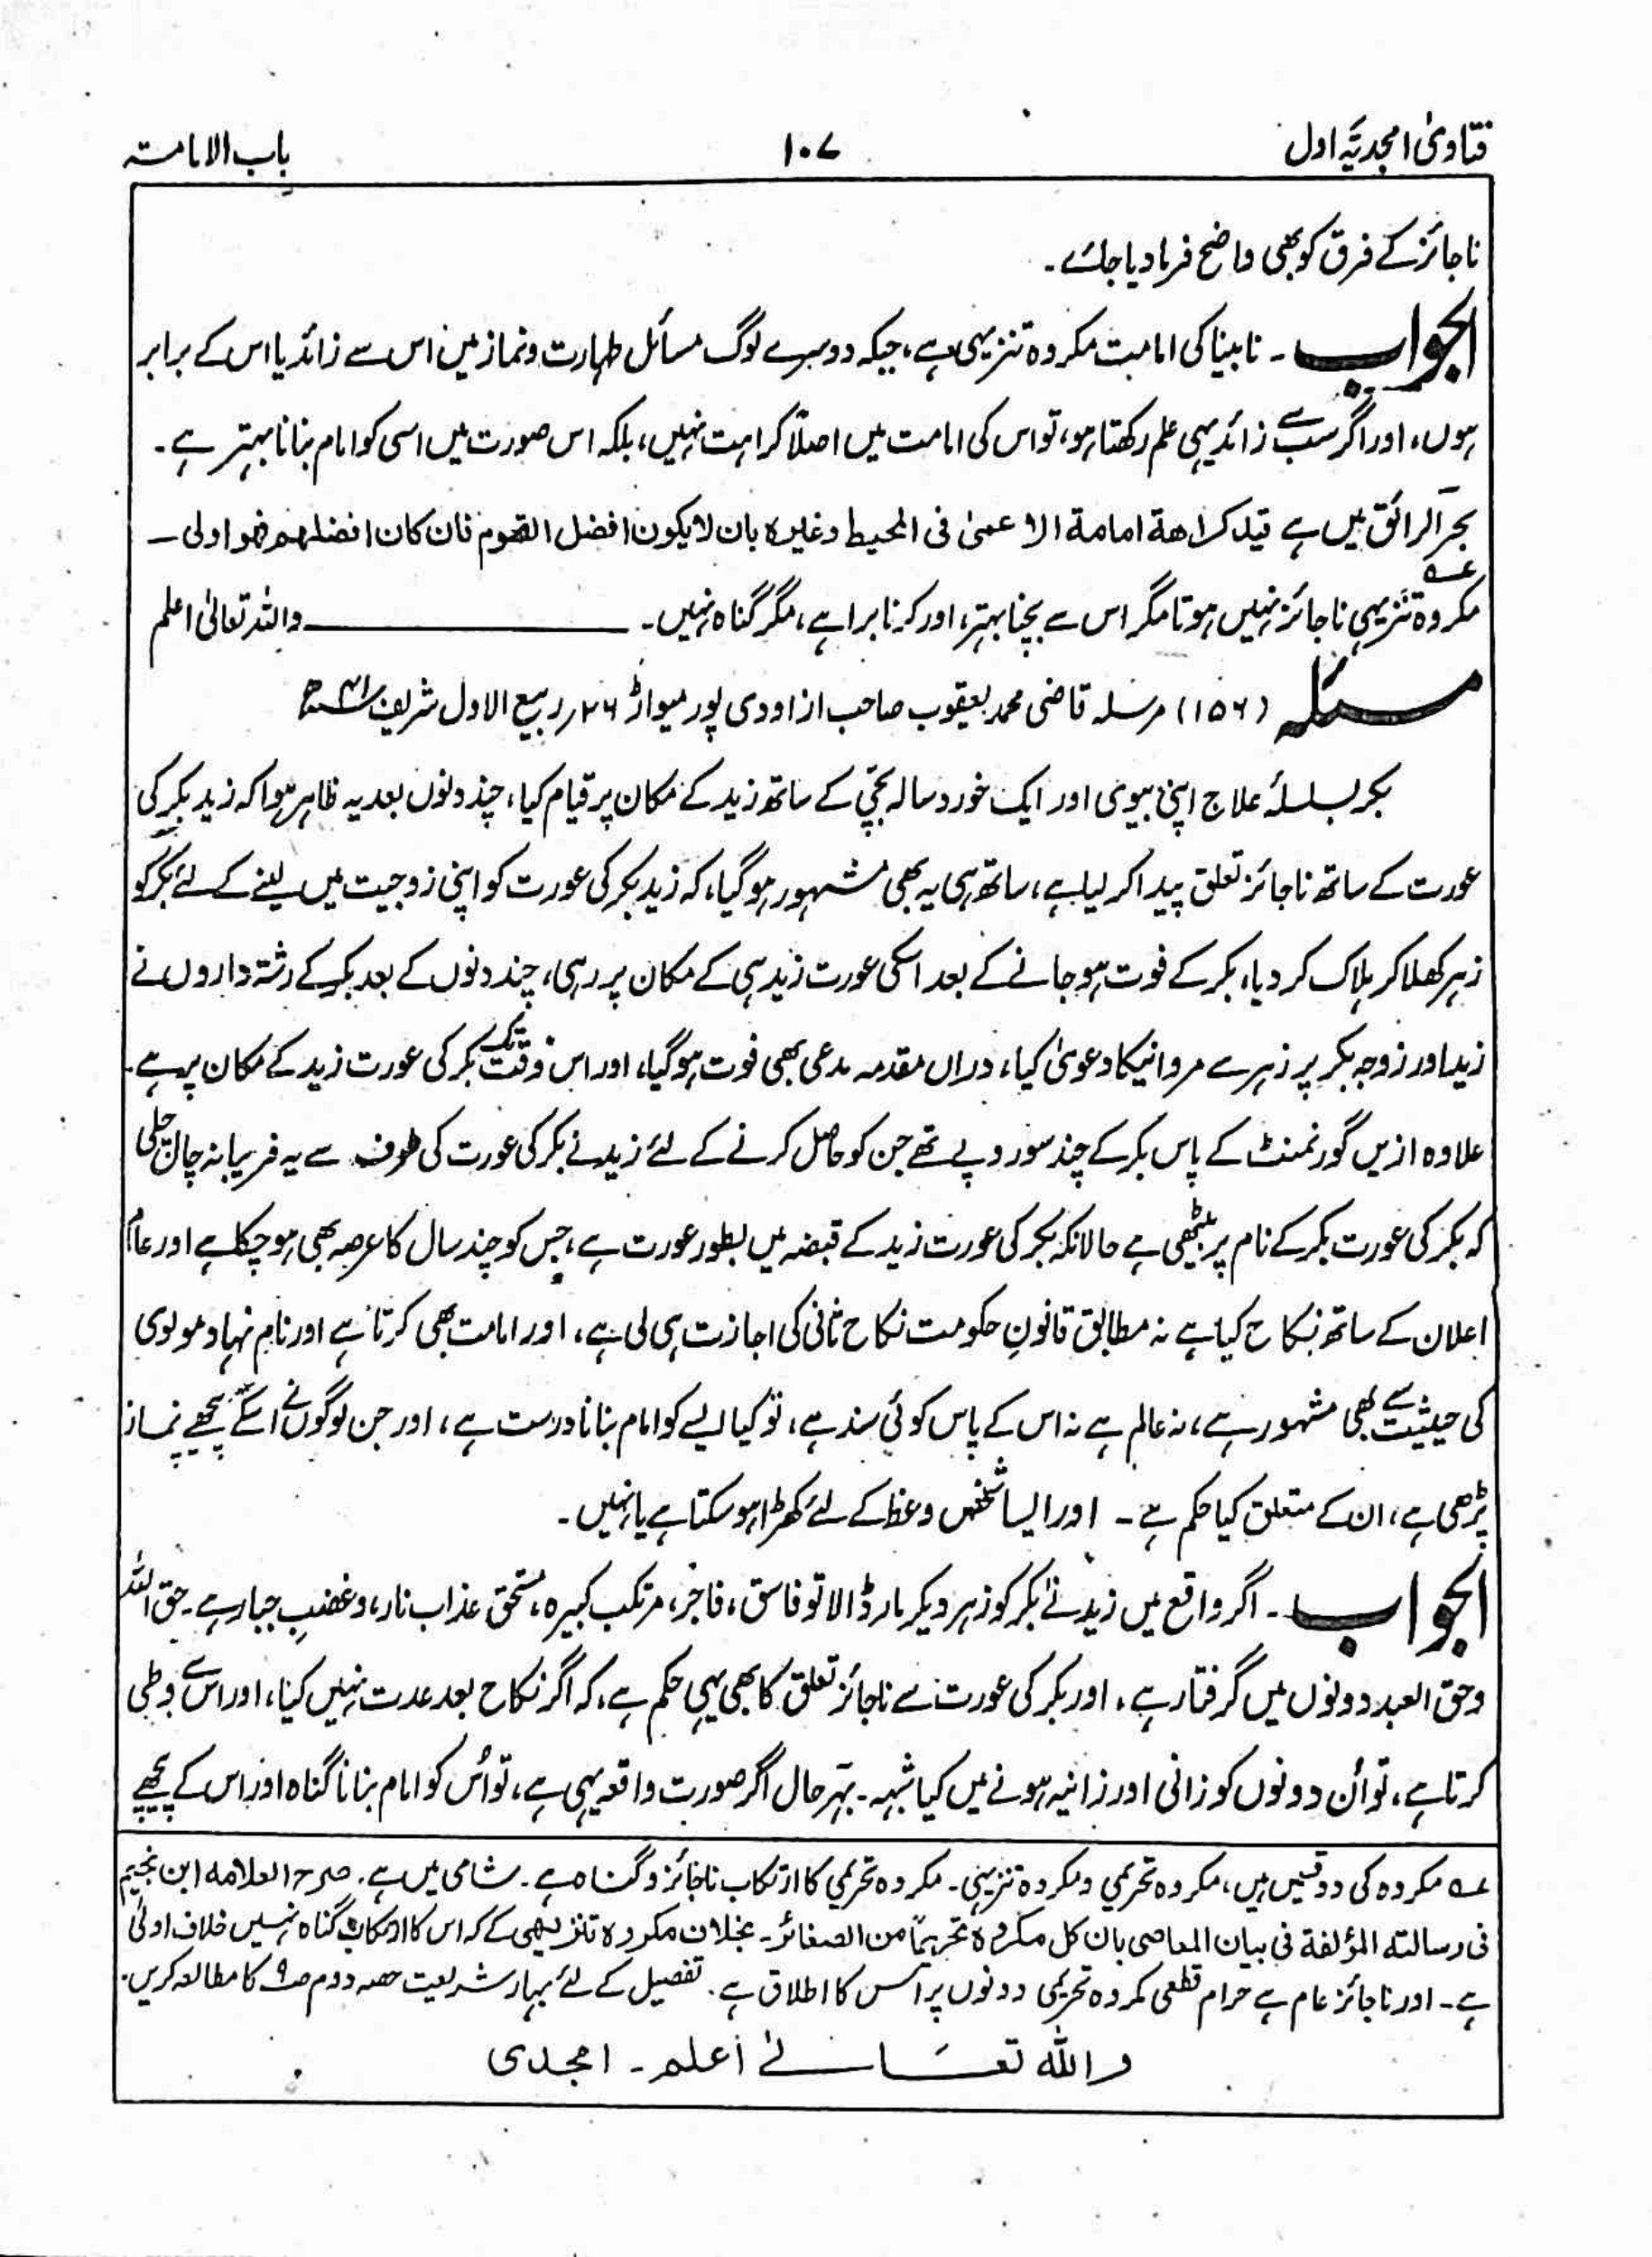 فتاویٰ امجدیہ اول ۱۰۷ باب الامامتہ
ناجائز کے فرق کو بھی واضح فرما دیا جائے۔
الجواب ۔ نابینا کی امامت مکروہ تنزیہی ہے، جبکہ دوسرے لوگ مسائل طہارت و نماز میں اس سے زائد یا اس کے برابر
ہوں، اور اگر سب سے زائد یہی علم رکھتا ہو، تو اس کی امامت میں اصلاً کراہت نہیں، بلکہ اس صورت میں اسی کو امام بنانا بہتر ہے۔
بحر الرائق میں ہے قید کراهة امامة الاعمیٰ فی المحیط وغیرہ بان لا یکون افضل القوم فان کان افضلهم فهو اولی ۔
مکروہ تنزیہی ناجائز نہیں ہوتا مگر اس سے بچنا بہتر، اور کرنا برا ہے، مگر گناہ نہیں۔ واللہ تعالیٰ اعلم
مسئلہ (۱۵۶) مرسلہ قاضی محمد یعقوب صاحب از اودی پور میواڑ ۲۶؍ ربیع الاول شریف ۴۱ھ
بکر بسلسلۂ علاج اپنی بیوی اور ایک خورد سالہ بچی کے ساتھ زید کے مکان پر قیام کیا، چند دنوں بعد یہ ظاہر ہوا کہ زید بکر کی
عورت کے ساتھ ناجائز تعلق پیدا کر لیا ہے، ساتھ ہی یہ بھی مشہور ہو گیا، کہ زید بکر کی عورت کو اپنی زوجیت میں لینے کے لئے بکر کو
زہر کھلا کر ہلاک کر دیا، بکر کے فوت ہو جانے کے بعد اسکی عورت زید ہی کے مکان پر رہی، چند دنوں کے بعد بکر کے رشتہ داروں نے
زید اور زوجہ بکر پر زہر سے مروانیکا دعویٰ کیا، دراں مقدمہ مدعی بھی فوت ہو گیا، اور اس وقت تک بکر کی عورت زید کے مکان پر ہے۔
علاوہ ازیں گورنمنٹ کے پاس بکر کے چند سو روپے تھے جن کو حاصل کرنے کے لئے زید نے بکر کی عورت کی طرف سے یہ فریبانہ چال چلی
کہ بکر کی عورت بکر کے نام پر بیٹھی ہے حالانکہ بکر کی عورت زید کے قبضہ میں بطور عورت ہے، جس کو چند سال کا عرصہ بھی ہو چکا ہے اور عام
اعلان کے ساتھ نکاح کیا ہے نہ مطابق قانونِ حکومت نکاح ثانی کی اجازت ہی لی ہے، اور امامت بھی کرتا ہے اور نام نہاد مولوی
کی حیثیت سے بھی مشہور ہے، نہ عالم ہے نہ اس کے پاس کوئی سند ہے، تو کیا ایسے کو امام بنانا درست ہے، اور جن لوگوں نے اسکے پیچھے نماز
پڑھی ہے، ان کے متعلق کیا حکم ہے۔ اور ایسا شخص وعظ کے لئے کھڑا ہو سکتا ہے یا نہیں۔
الجواب ۔ اگر واقع میں زید نے بکر کو زہر دیکر مار ڈالا تو فاسق، فاجر، مرتکب کبیرہ، مستحق عذاب نار، و غضبِ جبار ہے۔ حق اللہ
وحق العبد دونوں میں گرفتار ہے، اور بکر کی عورت سے ناجائز تعلق کا بھی یہی حکم ہے، کہ اگر نکاح بعد عدت نہیں کیا، اور اس سے وطی
کرتا ہے، تو اُن دونوں کو زانی اور زانیہ ہونے میں کیا شبہہ۔ بہر حال اگر صورت واقعہ یہی ہے، تو اُس کو امام بنانا گناہ اور اس کے پیچھے
عہ مکروہ کی دو قسیں ہیں، مکروہ تحریمی و مکروہ تنزیہی۔ مکروہ تحریمی کا ارتکاب ناجائز و گناہ ہے۔ شامی میں ہے۔ صرح العلامہ ابن نجیم
فی رسالتہ المؤلفة فی بیان المعاصی بان کل مکروہ تحریماً من الصغائر۔ بخلاف مکروہ تنزیہی کے کہ اس کا ارتکاب گناہ نہیں خلاف اولیٰ
ہے۔ اور ناجائز عام ہے حرام قطعی مکروہ تحریمی دونوں پر اس کا اطلاق ہے۔ تفصیل کے لئے بہار شریعت حصہ دوم ص۹ کا مطالعہ کریں۔
واللہ تعالیٰ اعلم۔ امجدی